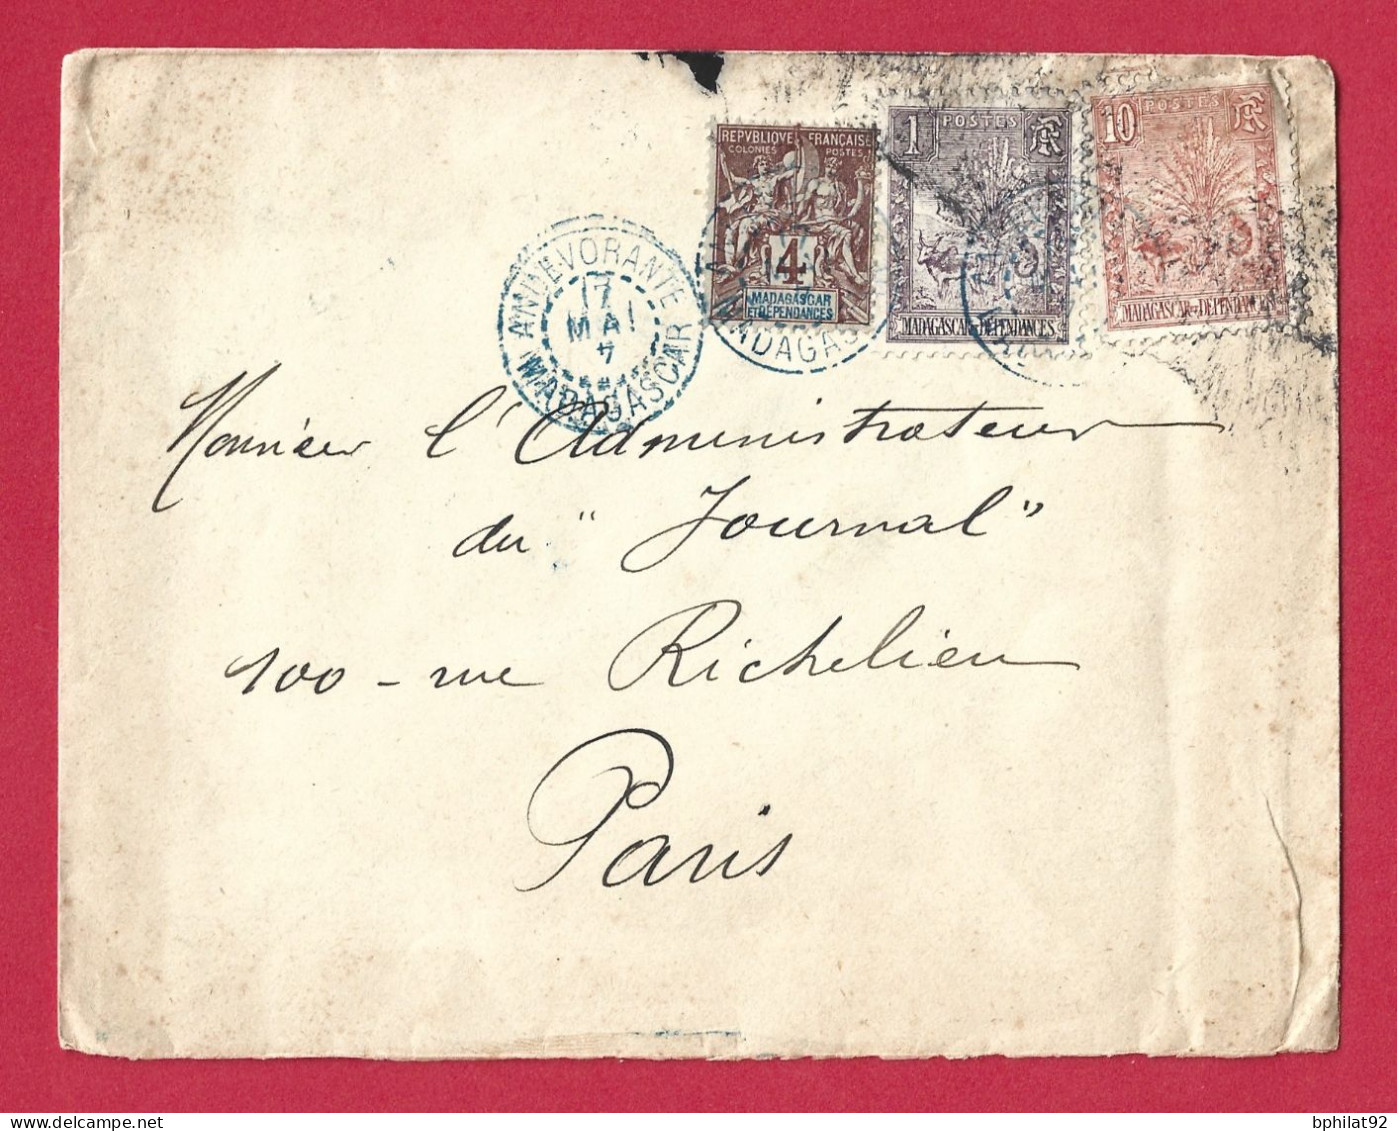 REPVBLIQVE FRANÇAISE
COLONIES POSTES
4
MADAGASCAR
ET DÉPENDANCES
1 POSTES RF
MADAGASCAR ET DÉPENDANCES
10 POSTES RF
MADAGASCAR ET DÉPENDANCES
ANDEVORANTE
17
MAI
MADAGASCAR
MADAGAS
Monsieur l'Administrateur
du "Journal"
100 - rue Richelieu
Paris
bphilat92